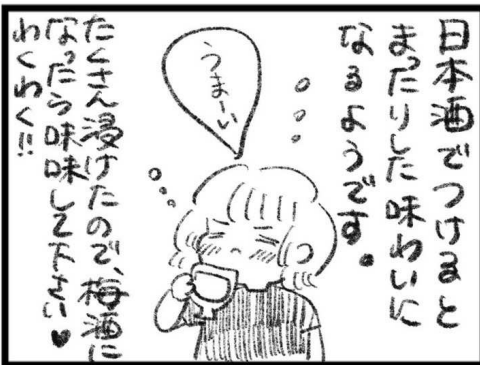 日本酒でつけると
まったりした味わいに
なるようです。
うまーい
たくさん浸けたので、梅酒に
なったら味味して下さい♥
わくわく!!